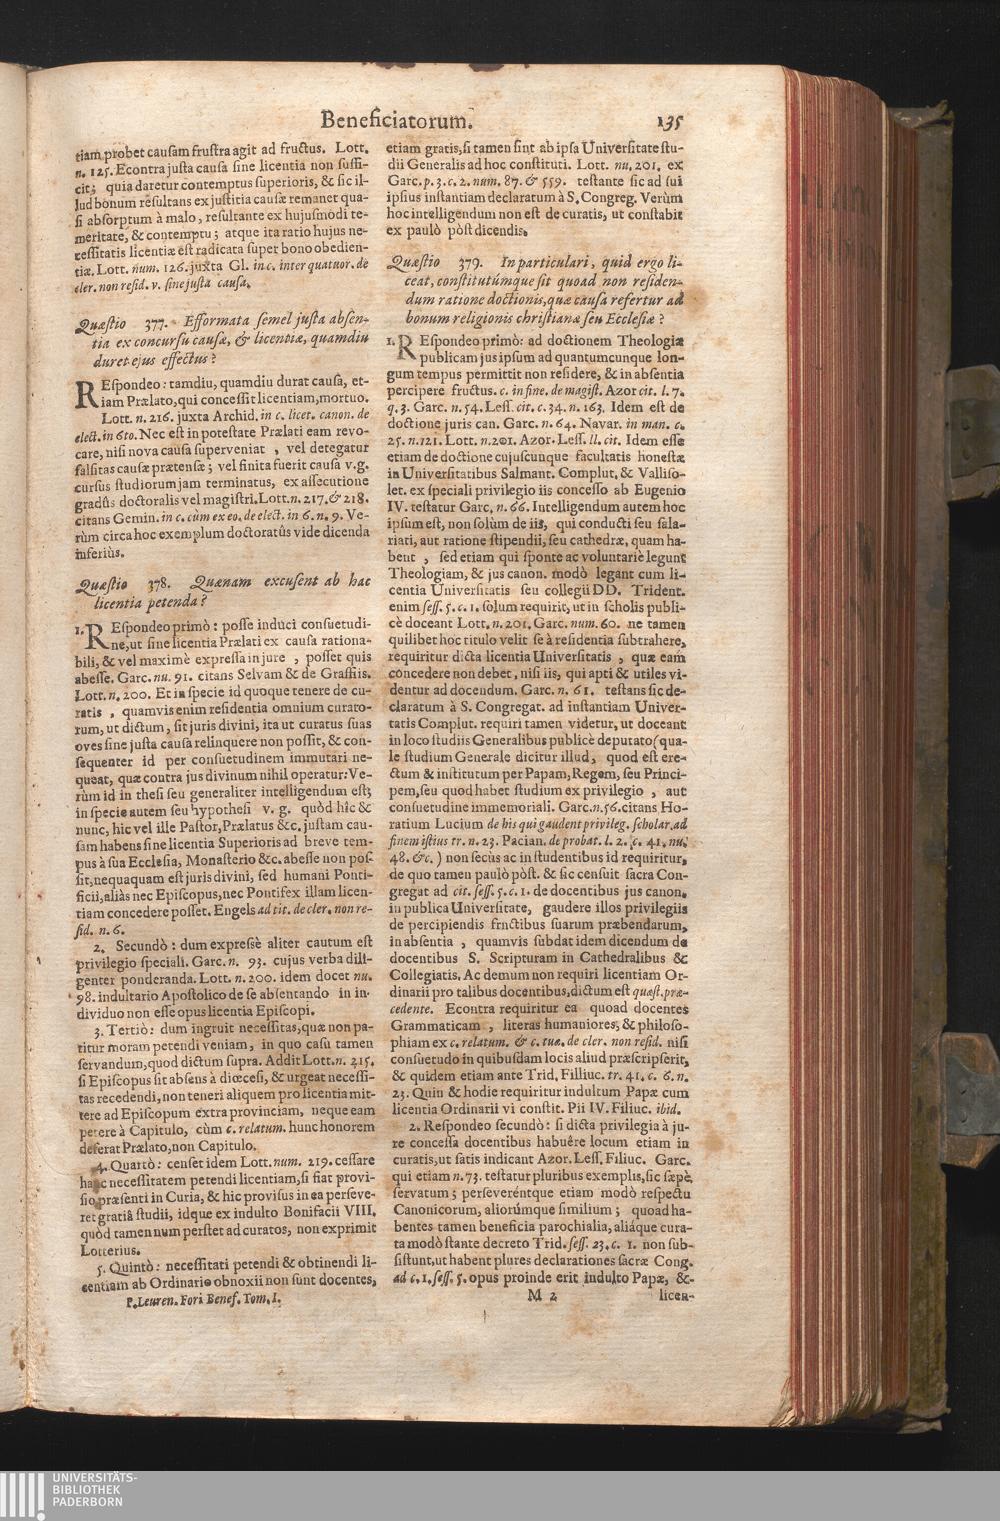 Beneficiatorum. 135
tiam probet causam frustra agit ad fructus. Lott.
n. 125. Econtra justa causa sine licentia non suffi-
cit; quia daretur contemptus superioris, & sic il-
lud bonum resultans ex justitia causæ remanet qua-
si absorptum à malo, resultante ex hujusmodi te-
meritate, & contemptu; atque ita ratio hujus ne-
cessitatis licentiæ est radicata super bono obedien-
tiæ. Lott. num. 126. juxta Gl. in c. inter quatuor. de
cler. non resid. v. sine justa causa.
Quæstio 377. Efformata semel justa absen-
tia ex concursu causæ, & licentiæ, quamdiu
duret ejus effectus?
REspondeo: tamdiu, quamdiu durat causa, et-
iam Prælato, qui concessit licentiam, mortuo.
Lott. n. 216. juxta Archid. in c. licet. canon. de
elect. in 6to. Nec est in potestate Prælati eam revo-
care, nisi nova causa superveniat, vel detegatur
falsitas causæ prætensæ; vel finita fuerit causa v.g.
cursus studiorum jam terminatus, ex assecutione
gradûs doctoralis vel magistri. Lott. n. 217. & 218.
citans Gemin. in c. cùm ex eo. de elect. in 6. n. 9. Ve-
rùm circa hoc exemplum doctoratûs vide dicenda
inferiùs.
Quæstio 378. Quænam excusent ab hac
licentia petenda?
1. REspondeo primò: posse induci consuetudi-
ne, ut sine licentia Prælati ex causa rationa-
bili, & vel maximè expressa in jure, posset quis
abesse. Garc. nu. 91. citans Selvam & de Graffiis.
Lott. n. 200. Et in specie id quoque tenere de cu-
ratis, quamvis enim residentia omnium curato-
rum, ut dictum, sit juris divini, ita ut curatus suas
oves sine justa causa relinquere non possit, & con-
sequenter id per consuetudinem immutari ne-
queat, quæ contra jus divinum nihil operatur: Ve-
rùm id in thesi seu generaliter intelligendum est;
in specie autem seu hypothesi v. g. quòd hìc &
nunc, hic vel ille Pastor, Prælatus &c. justam cau-
sam habens sine licentia Superioris ad breve tem-
pus à sua Ecclesia, Monasterio &c. abesse non pos-
sit, nequaquam est juris divini, sed humani Ponti-
ficii, aliàs nec Episcopus, nec Pontifex illam licen-
tiam concedere posset. Engels ad tit. de cler. non re-
sid. n. 6.
2. Secundò: dum expressè aliter cautum est
privilegio speciali. Garc. n. 93. cujus verba dili-
genter ponderanda. Lott. n. 200. idem docet nu.
98. indultario Apostolico de se absentando in in-
dividuo non esse opus licentia Episcopi.
3. Tertiò: dum ingruit necessitas, quæ non pa-
titur moram petendi veniam, in quo casu tamen
servandum, quod dictum supra. Addit Lott. n. 215.
si Episcopus sit absens à diœcesi, & urgeat necessi-
tas recedendi, non teneri aliquem pro licentia mit-
tere ad Episcopum extra provinciam, neque eam
petere à Capitulo, cùm c. relatum. hunc honorem
deferat Prælato, non Capitulo.
4. Quartò: censet idem Lott. num. 219. cessare
hanc necessitatem petendi licentiam, si fiat provi-
sio præsenti in Curia, & hic provisus in ea perseve-
ret gratiâ studii, idque ex indulto Bonifacii VIII.
quòd tamen num perstet ad curatos, non exprimit
Lotterius.
5. Quintò: necessitati petendi & obtinendi li-
centiam ab Ordinario obnoxii non sunt docentes,
P. Leuren. Fori Benef. Tom. I.
etiam gratis, si tamen sint ab ipsa Universitate stu-
dii Generalis ad hoc constituti. Lott. nu. 201. ex
Garc. p. 3. c. 2. num. 87. & 559. testante sic ad sui
ipsius instantiam declaratum à S. Congreg. Verùm
hoc intelligendum non est de curatis, ut constabit
ex paulò pòst dicendis.
Quæstio 379. In particulari, quid ergo li-
ceat, constitutúmque sit quoad non residen-
dum ratione doctionis, quæ causa refertur ad
bonum religionis christianæ seu Ecclesiæ?
1. REspondeo primò: ad doctionem Theologiæ
publicam jus ipsum ad quantumcunque lon-
gum tempus permittit non residere, & in absentia
percipere fructus. c. in fine. de magist. Azor cit. l. 7.
q. 3. Garc. n. 54. Less. cit. c. 34. n. 163. Idem est de
doctione juris can. Garc. n. 64. Navar. in man. c.
25. n. 121. Lott. n. 201. Azor. Less. ll. cit. Idem esse
etiam de doctione cujuscunque facultatis honestæ
in Universitatibus Salmant. Complut. & Valliso-
let. ex speciali privilegio iis concesso ab Eugenio
IV. testatur Garc. n. 66. Intelligendum autem hoc
ipsum est, non solùm de iis, qui conducti seu sala-
riati, aut ratione stipendii, seu cathedræ, quam ha-
bent, sed etiam qui sponte ac voluntariè legunt
Theologiam, & jus canon. modò legant cum li-
centia Universitatis seu collegii DD. Trident.
enim sess. 5. c. 1. solum requirit, ut in scholis publi-
cè doceant Lott. n. 201. Garc. num. 60. ne tamen
quilibet hoc titulo velit se à residentia subtrahere,
requiritur dicta licentia Universitatis, quæ eam
concedere non debet, nisi iis, qui apti & utiles vi-
dentur ad docendum. Garc. n. 61. testans sic de-
claratum à S. Congregat. ad instantiam Univer-
tatis Complut. requiri tamen videtur, ut doceant
in loco studiis Generalibus publicè deputato (qua-
le studium Generale dicitur illud, quod est ere-
ctum & institutum per Papam, Regem, seu Princi-
pem, seu quod habet studium ex privilegio, aut
consuetudine immemoriali. Garc. n. 56. citans Ho-
ratium Lucium de his qui gaudent privileg. scholar. ad
finem istius tr. n. 23. Pacian. de probat. l. 2. c. 41. nu.
48. &c.) non secùs ac in studentibus id requiritur,
de quo tamen paulò pòst. & sic censuit sacra Con-
gregat ad cit. sess. 5. c. 1. de docentibus jus canon.
in publica Universitate, gaudere illos privilegiis
de percipiendis frnctibus suarum præbendarum,
in absentia, quamvis subdat idem dicendum de
docentibus S. Scripturam in Cathedralibus &
Collegiatis. Ac demum non requiri licentiam Or-
dinarii pro talibus docentibus, dictum est quæst. præ-
cedente. Econtra requiritur ea quoad docentes
Grammaticam, literas humaniores, & philoso-
phiam ex c. relatum. & c. tuæ. de cler. non resid. nisi
consuetudo in quibusdam locis aliud præscripserit,
& quidem etiam ante Trid. Filliuc. tr. 41. c. 6. n.
23. Quin & hodie requiritur indultum Papæ cum
licentia Ordinarii vi constit. Pii IV. Filiuc. ibid.
2. Respondeo secundò: si dicta privilegia à ju-
re concessa docentibus habuêre locum etiam in
curatis, ut satis indicant Azor. Less. Filiuc. Garc.
qui etiam n. 73. testatur pluribus exemplis, sic sæpè
servatum; perseveréntque etiam modò respectu
Canonicorum, aliorúmque similium; quoad ha-
bentes tamen beneficia parochialia, aliáque cura-
ta modò stante decreto Trid. sess. 23. c. 1. non sub-
sistunt, ut habent plures declarationes sacræ Cong.
ad c. 1. sess. 5. opus proinde erit indulto Papæ, &-
M 2 licen-
UNIVERSITÄTS-
BIBLIOTHEK
PADERBORN